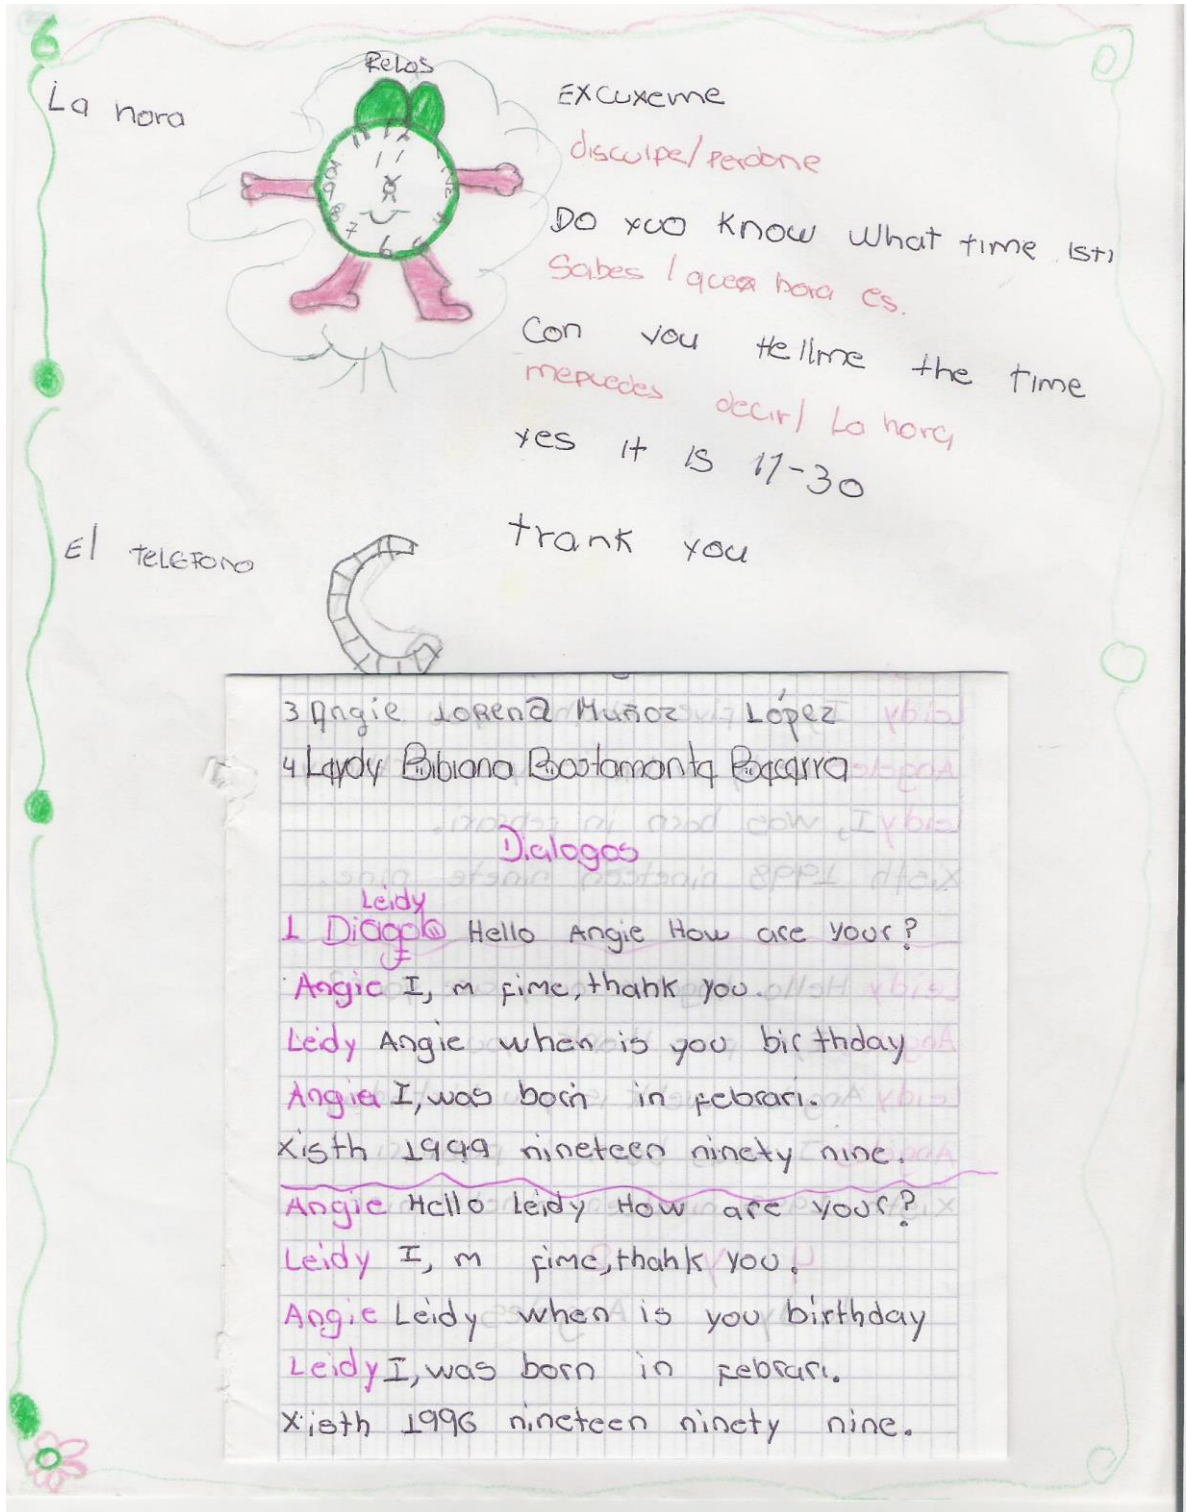 6
La hora
Relos
12
1
2
10
9
8
7
6
Excuxeme
disculpe/Perdone
Do xuo Know What time isti
Sabes / quea hora es.
Con you tellme the time
mepuedes decir/ La hora
yes it is 11-30
trank you
El TELEFONO
3 Angie Lorena Muñoz López
4 Leydy Bibiana Bostamanta Becarra
Dialogos
Leidy
1 Hello Angie How are your?
Angie I, m fime, thahk you.
Leidy Angie when is you birthday
Angie I, was born in febrari.
Xisth 1999 nineteen ninety nine.
Angie Hello Leidy How are your?
Leidy I, m fime, thahk you.
Angie Leidy when is you birthday
Leidy I, was born in febrari.
Xisth 1996 nineteen ninety nine.